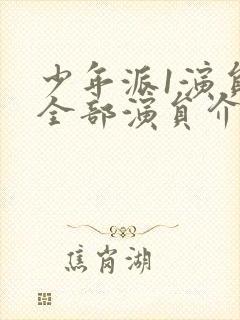 少年派1演员
全部演员介
焦岗湖